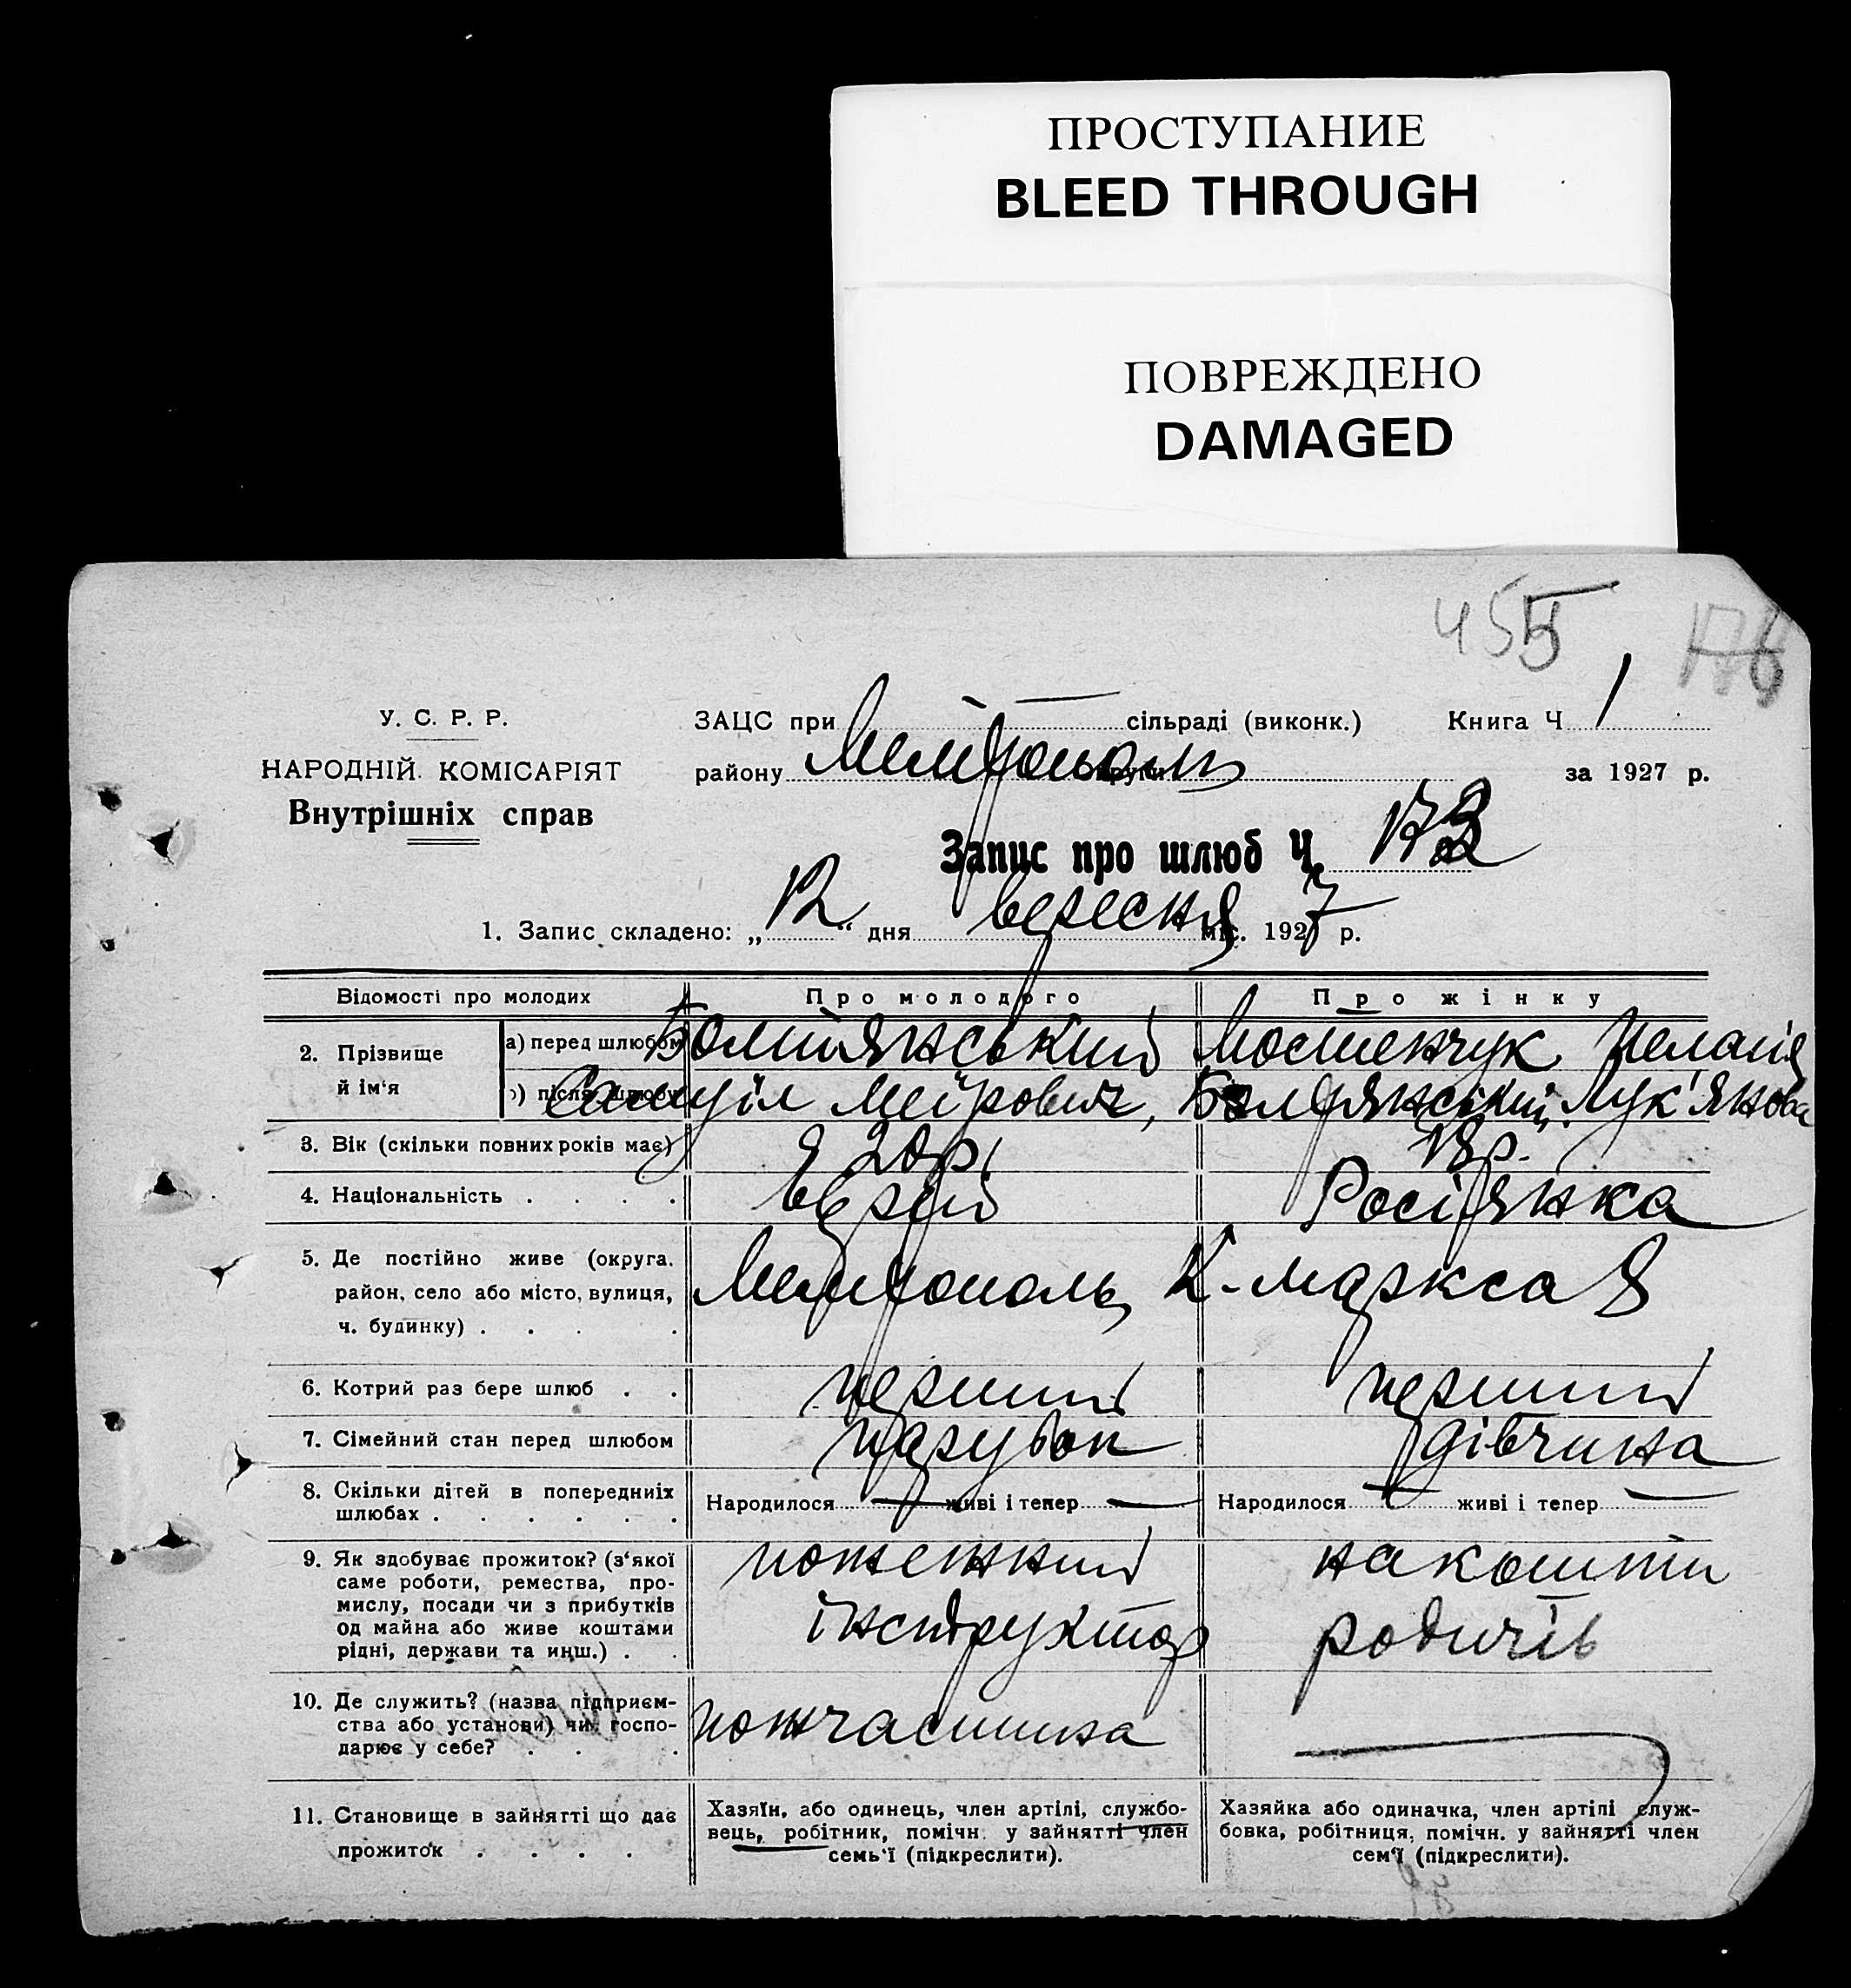 ПРОСТУПАНИЕ
BLEED THROUGH
ПОВРЕЖДЕНО
DAMAGED
455
У. С. Р. Р.
НАРОДНІЙ КОМІСАРІЯТ
Внутрішніх справ
ЗАЦС при сільраді (виконк.) Книга Ч 1
району Мелітополь за 1927 р.
Запис про шлюб Ч. 173
1. Запис складено: „12“ дня вересня міс. 1927 р.
Відомості про молодих Про молодого Про жінку
2. Прізвище й ім‘я
а) перед шлюбом Болтянський Мошенчук Пелагія
б) після шлюбу Самуїл Меїрович, Болтянский Лук'янова
3. Вік (скільки повних років має) 20 р. 18 р.
4. Національність . . . . Єврей Росіянка
5. Де постійно живе (округа.
район, село або місто, вулиця,
ч. будинку) . . . . Мелітополь, К-Маркса 8
6. Котрий раз бере шлюб . . перший перший
7. Сімейний стан перед шлюбом парубок дівчина
8. Скільки дітей в попередниіх
шлюбах . . . . . . Народилося — живі і тепер — Народилося — живі і тепер —
9. Як здобуває прожиток? (з‘якої
саме роботи, ремества, про-
мислу, посади чи з прибутків
од майна або живе коштами
рідні, держави та инш.) . .
пожежний
інструктор
на кошти
родичів
10. Де служить? (назва підприєм-
ства або установи) чи госпо-
дарює у себе? . . .
пожчастина —
11. Становище в зайнятті що дає
прожиток . . . .
Хазяїн, або одинець, член артілі, службо-
вець, робітник, помічн. у зайнятті член
семь‘ї (підкреслити).
Хазяйка або одиначка, член артілі служ-
бовка, робітниця, помічн. у зайнятті член
сем‘ї (підкреслити).